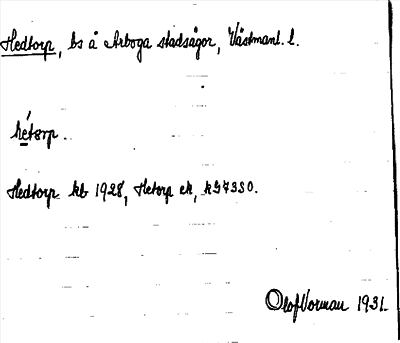 Hedtorp, bs å Arboga stadsägor, Västmanl. l.
hétorp.
Hedtorp kb 1928, Hetorp ek,
Olof Vorman 1931.